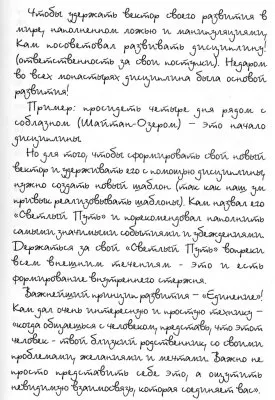 Чтобы удержать вектор своего развития в
мире, наполненном ложью и манипуляциями,
Кам посоветовал развивать дисциплину!
(ответственность за свои поступки). Недаром
во всех монастырях дисциплина была основой
развития!
Пример: просидеть четыре дня рядом с
соблазном (Шайтан-Озером) – это начало
дисциплины.
Но для того, чтобы сформировать свой новый
вектор и удерживать его с помощью дисциплины,
нужно создать новый шаблон (так как наш ум
привык реализовывать шаблоны). Кам назвал его
«Светлый Путь» и порекомендовал наполнить
самыми значимыми событиями и убеждениями.
Держаться за свой «Светлый Путь» вопреки
всем внешним течениям - это и есть
формирование внутреннего стержня.
Важнейший принцип развития – «Единение»!
Кам дал очень интересную и простую технику –
«когда общаешься с человеком, представь, что этот
человек - твой близкий родственник, со своими
проблемами, желаниями и мечтами. Важно не
просто представить себе это, а ощутить
невидимую взаимосвязь, которая соединяет вас».